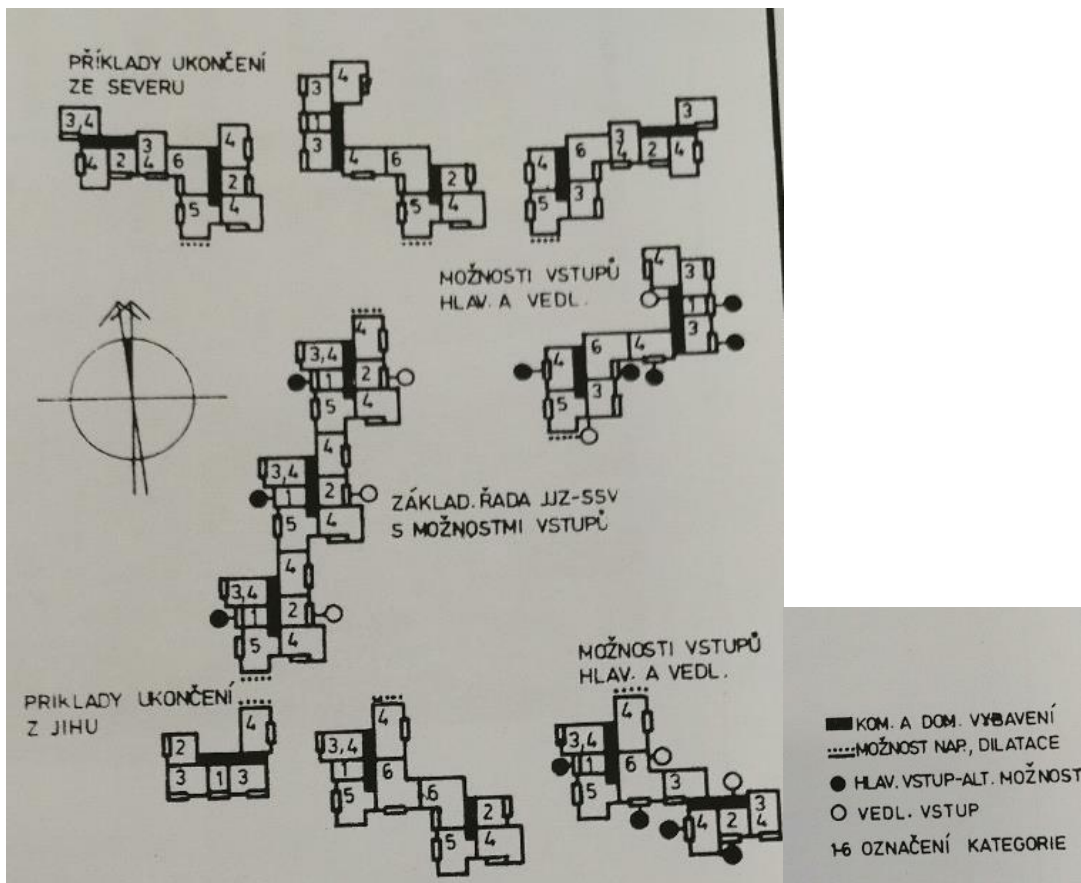 PŘÍKLADY UKONČENÍ
ZE SEVERU
3,4
3
4
4 2 4 6
2
5 4
4
3
1
3
4 6
2
5 4
3
3
4 6 4 2 4
5 3
MOŽNOSTI VSTUPŮ
HLAV. A VEDL.
4 3
1
3
6 4
4
5 3
4
3,4
1 2
5 4
4
3,4
1 2
5 4
4
3,4
1 2
5 4
ZÁKLAD. ŘADA JJZ-SSV
S MOŽNOSTMI VSTUPŮ
PRIKLADY UKONČENÍ
Z JIHU
4
2
3 1 3
4
3,4
1 6
5 6
2
5 4
MOŽNOSTI VSTUPŮ
HLAV. A VEDL.
4
3,4
1 6
5 3
3
4 2 4
KOM. A DOM. VYBAVENÍ
MOŽNOST NAP., DILATACE
HLAV. VSTUP-ALT. MOŽNOST
VEDL. VSTUP
1-6 OZNAČENÍ KATEGORIE